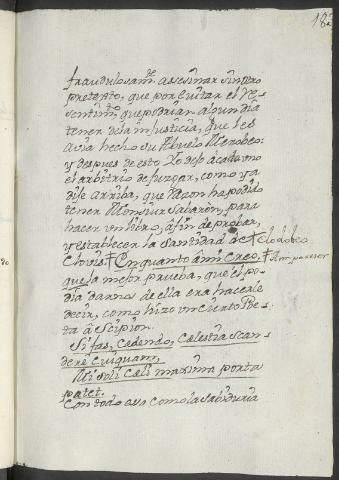 182
fraudulosamte. assesinar sin otro
pretexto, que por evitar el Re-
sentimto. que podrian algun dia
tener dela injusticia, que les
avia hecho su Abuelo Merobeo:
y despues de esto Yo dejo à cada uno
el arbitrio de juzgar, como ya
dije arriba, que Razon ha podido
tener Monsiur Sabaron, para
hacer un libro, à fin de probar,
y establecer la santidad de † Clodobeo
Clovis. † En quanto à mi Creo, † A mi parecer
que la mejor prueba, que el po-
dia darnos de ella era hacerle
decir, como hizo un Cierto Poe-
ta à Scipion.
Si fas, Cedendo, Calestia scan-
dere Cuiquam,
Mi soli Cæli maxima porta
patet.
Con todo eso como la sabiduria
do